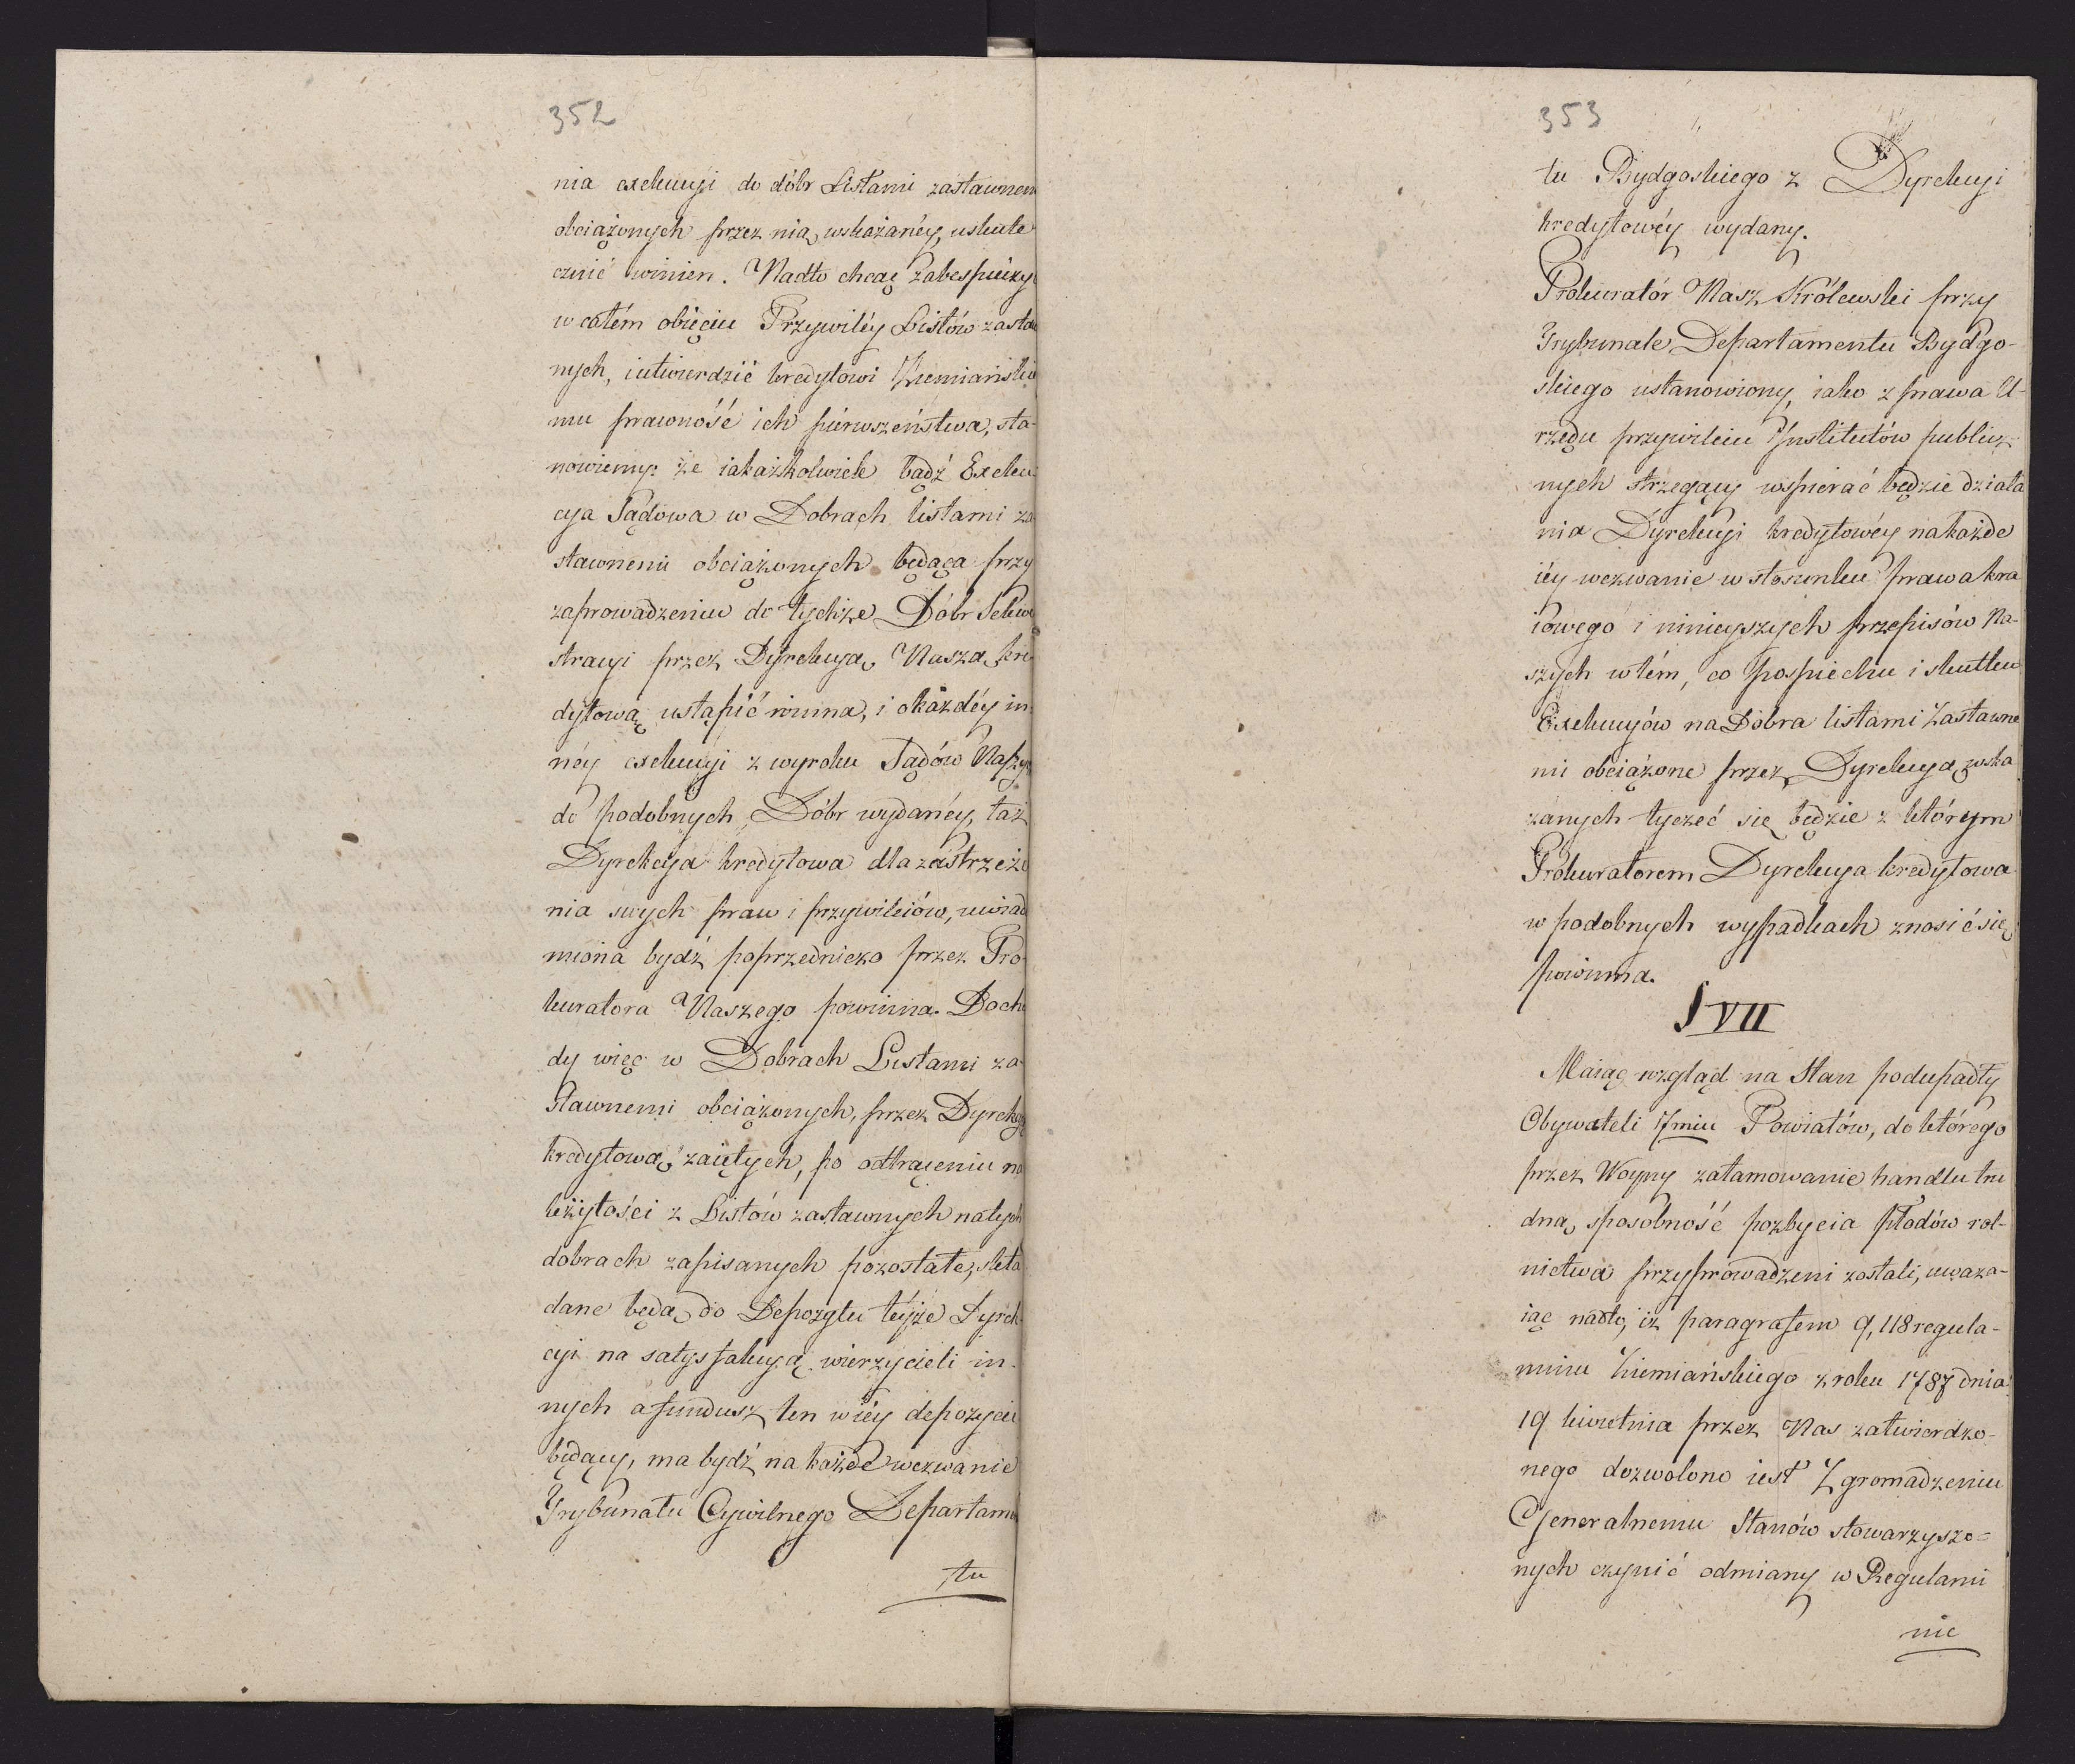 352
nia exekucyi do dóbr Listami zastawnem
obciążonych przez nią wskazanéy, uskute
cznić winien. Nadto chcąc zabespieczy
w całém obięciu Przywiléy Listów zastaw
nych, i utwierdzić kredytowi Ziemiańskie
mu prawność ich pierwszeństwa, sta-
nowiemy: że iakażkolwiek bądź Exeku
cya Sądowa w Dobrach listami za
stawnemi obciążonych będąca przy
zaprowadzeniu do tychże Dóbr Sekwe
stracyi przez Dyrekcyą Naszą kre
dytową ustąpić winna, i o każdéy in
néy exekucyi z wyroku Sądów Naszy
do podobnych Dóbr wydanéy, taż
Dyrekcya kredytowa dla zastrzeże
nia swych praw i przywileiów, uwiado
miona bydź poprzedniczo przez Pro
kuratora Naszego powinna. Docho
dy więc w Dobrach Listami za
stawnemi obciążonych, przez Dyrekcyą
kredytową zaiętych, po odtrąceniu na
leżytości z Listów zastawnych na tych
dobrach zapisanych pozostałe, skła
dane będą do Depozytu téyże Dyrek
cyi na satysfakcyą wierzycieli in-
nych a fundusz ten w iéy depozycie
będący, ma bydź na każde wezwanie
Trybunału Cywilnego Departamen
tu
353
tu Bydgoskiego z Dyrekcyi
kredytowéy wydany.
Prokuratór Nasz Królewski przy
Trybunale Departamentu Bydgo-
skiego ustanowiony, iako z prawa U-
rzędu przywileiu Instytutów publicz
nych strzegący wspierać będzie działa
nia Dyrekcyi kredytowéy na każde
iéy wezwanie w stosunku prawa kra
iowego i ninieyszych przepisów Na-
szych w tém, co pospiechu i skutku
Exekucyów na Dobra listami Zastawne
mi obciążone przez Dyrekcyą wska
zanych tyczeć się będzie z którym
Prokuratorem Dyrekcya kredytowa
w podobnych wypadkach znosić się
powinna.
§ VII
Maiąc wzgląd na Stan podupadły
Obywateli 7miu Powiatów, do którego
przez Woyny zatamowanie handlu tru
dną sposobność pozbycia płodów rol-
nictwa przyprowadzeni zostali, uważa-
iąc nadto, iż paragrafem 9, 118 regula-
minu Ziemiańskiego z roku 1787 dnia
19 kwietnia przez Nas zatwierdzo-
nego dozwolono iest Zgromadzeniu
Generalnemu Stanów stowarzyszo=
nych czynić odmiany w Regulami
nie